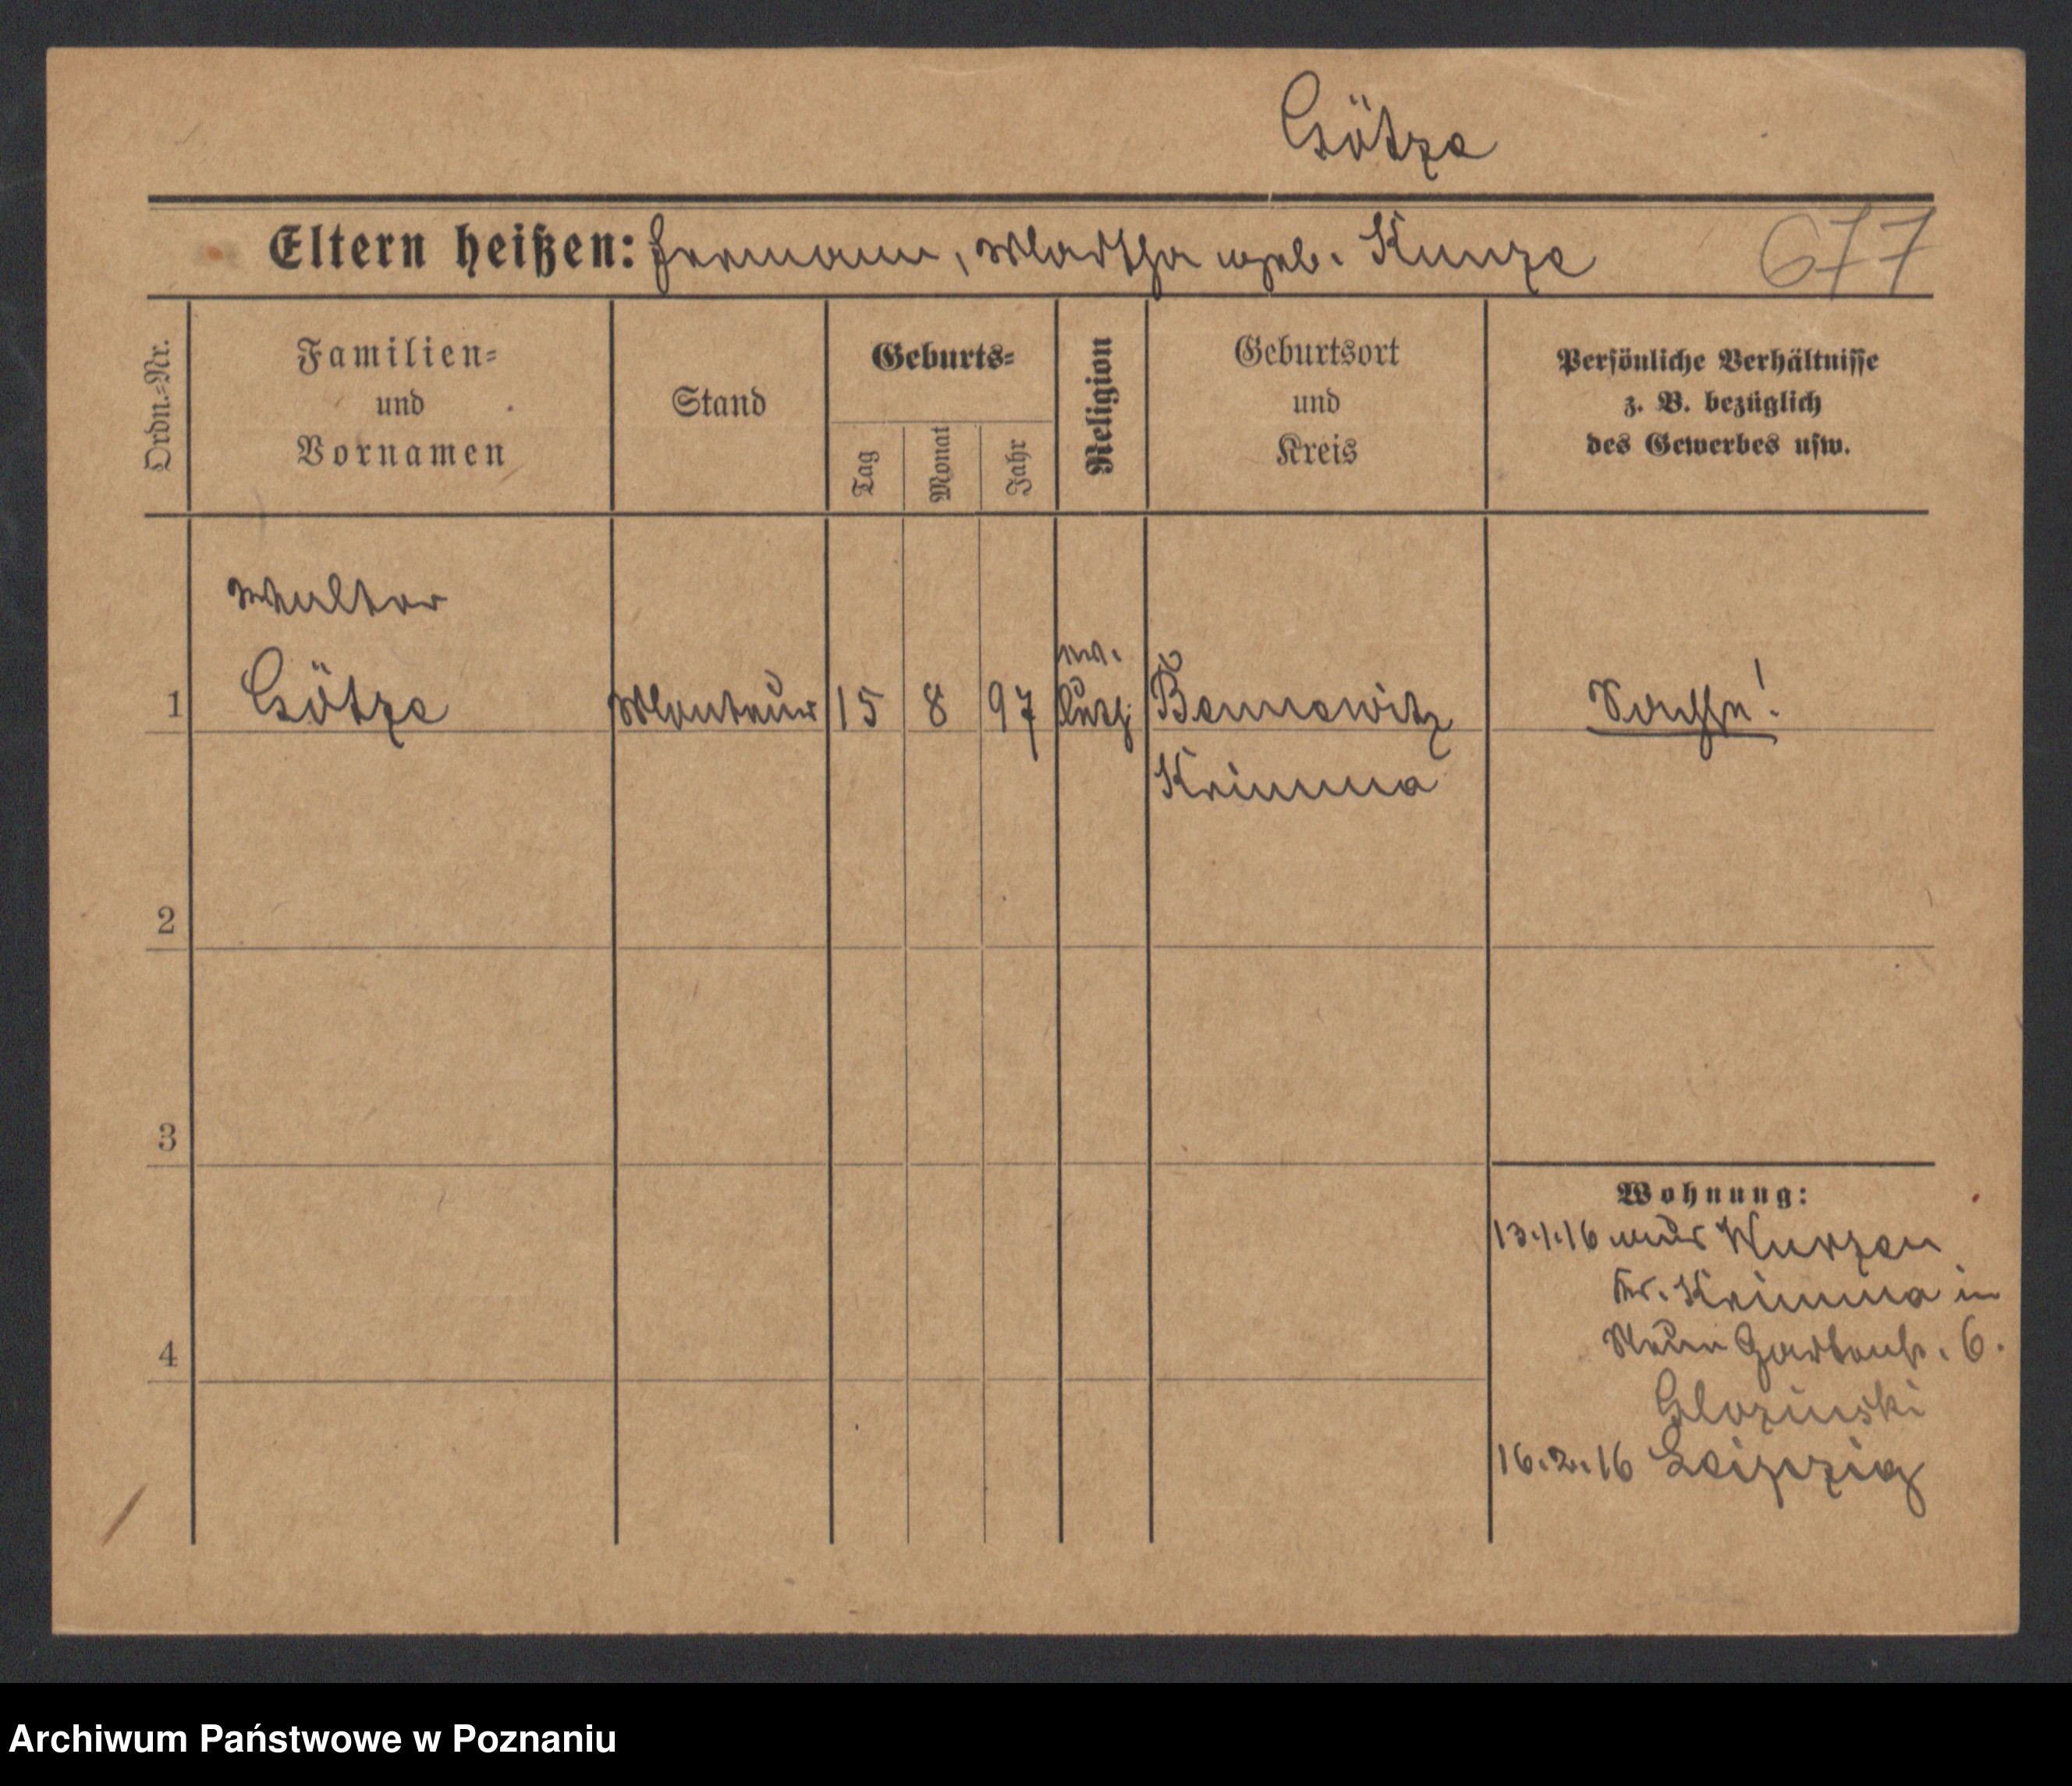 Götze
Eltern heißen: Hermann, Martha geb. Kunze 677
Ordn.-Nr.
Familien- und Vornamen
Stand
Geburts-
Tag
Monat
Jahr
Religion
Geburtsort und Kreis
Persönliche Verhältnisse
z. B. bezüglich
des Gewerbes usw.
Walter
ev.
1 Götze Monteur 15 8 97 luth Bennewitz Sachse!
Krimma
2
3
Wohnung:
13.1.16 aus Wurzen
Kr. Krimma in
4
Neue Gartenstr. 6.
Glozinski
16.2.16 Leipzig
Archiwum Państwowe w Poznaniu